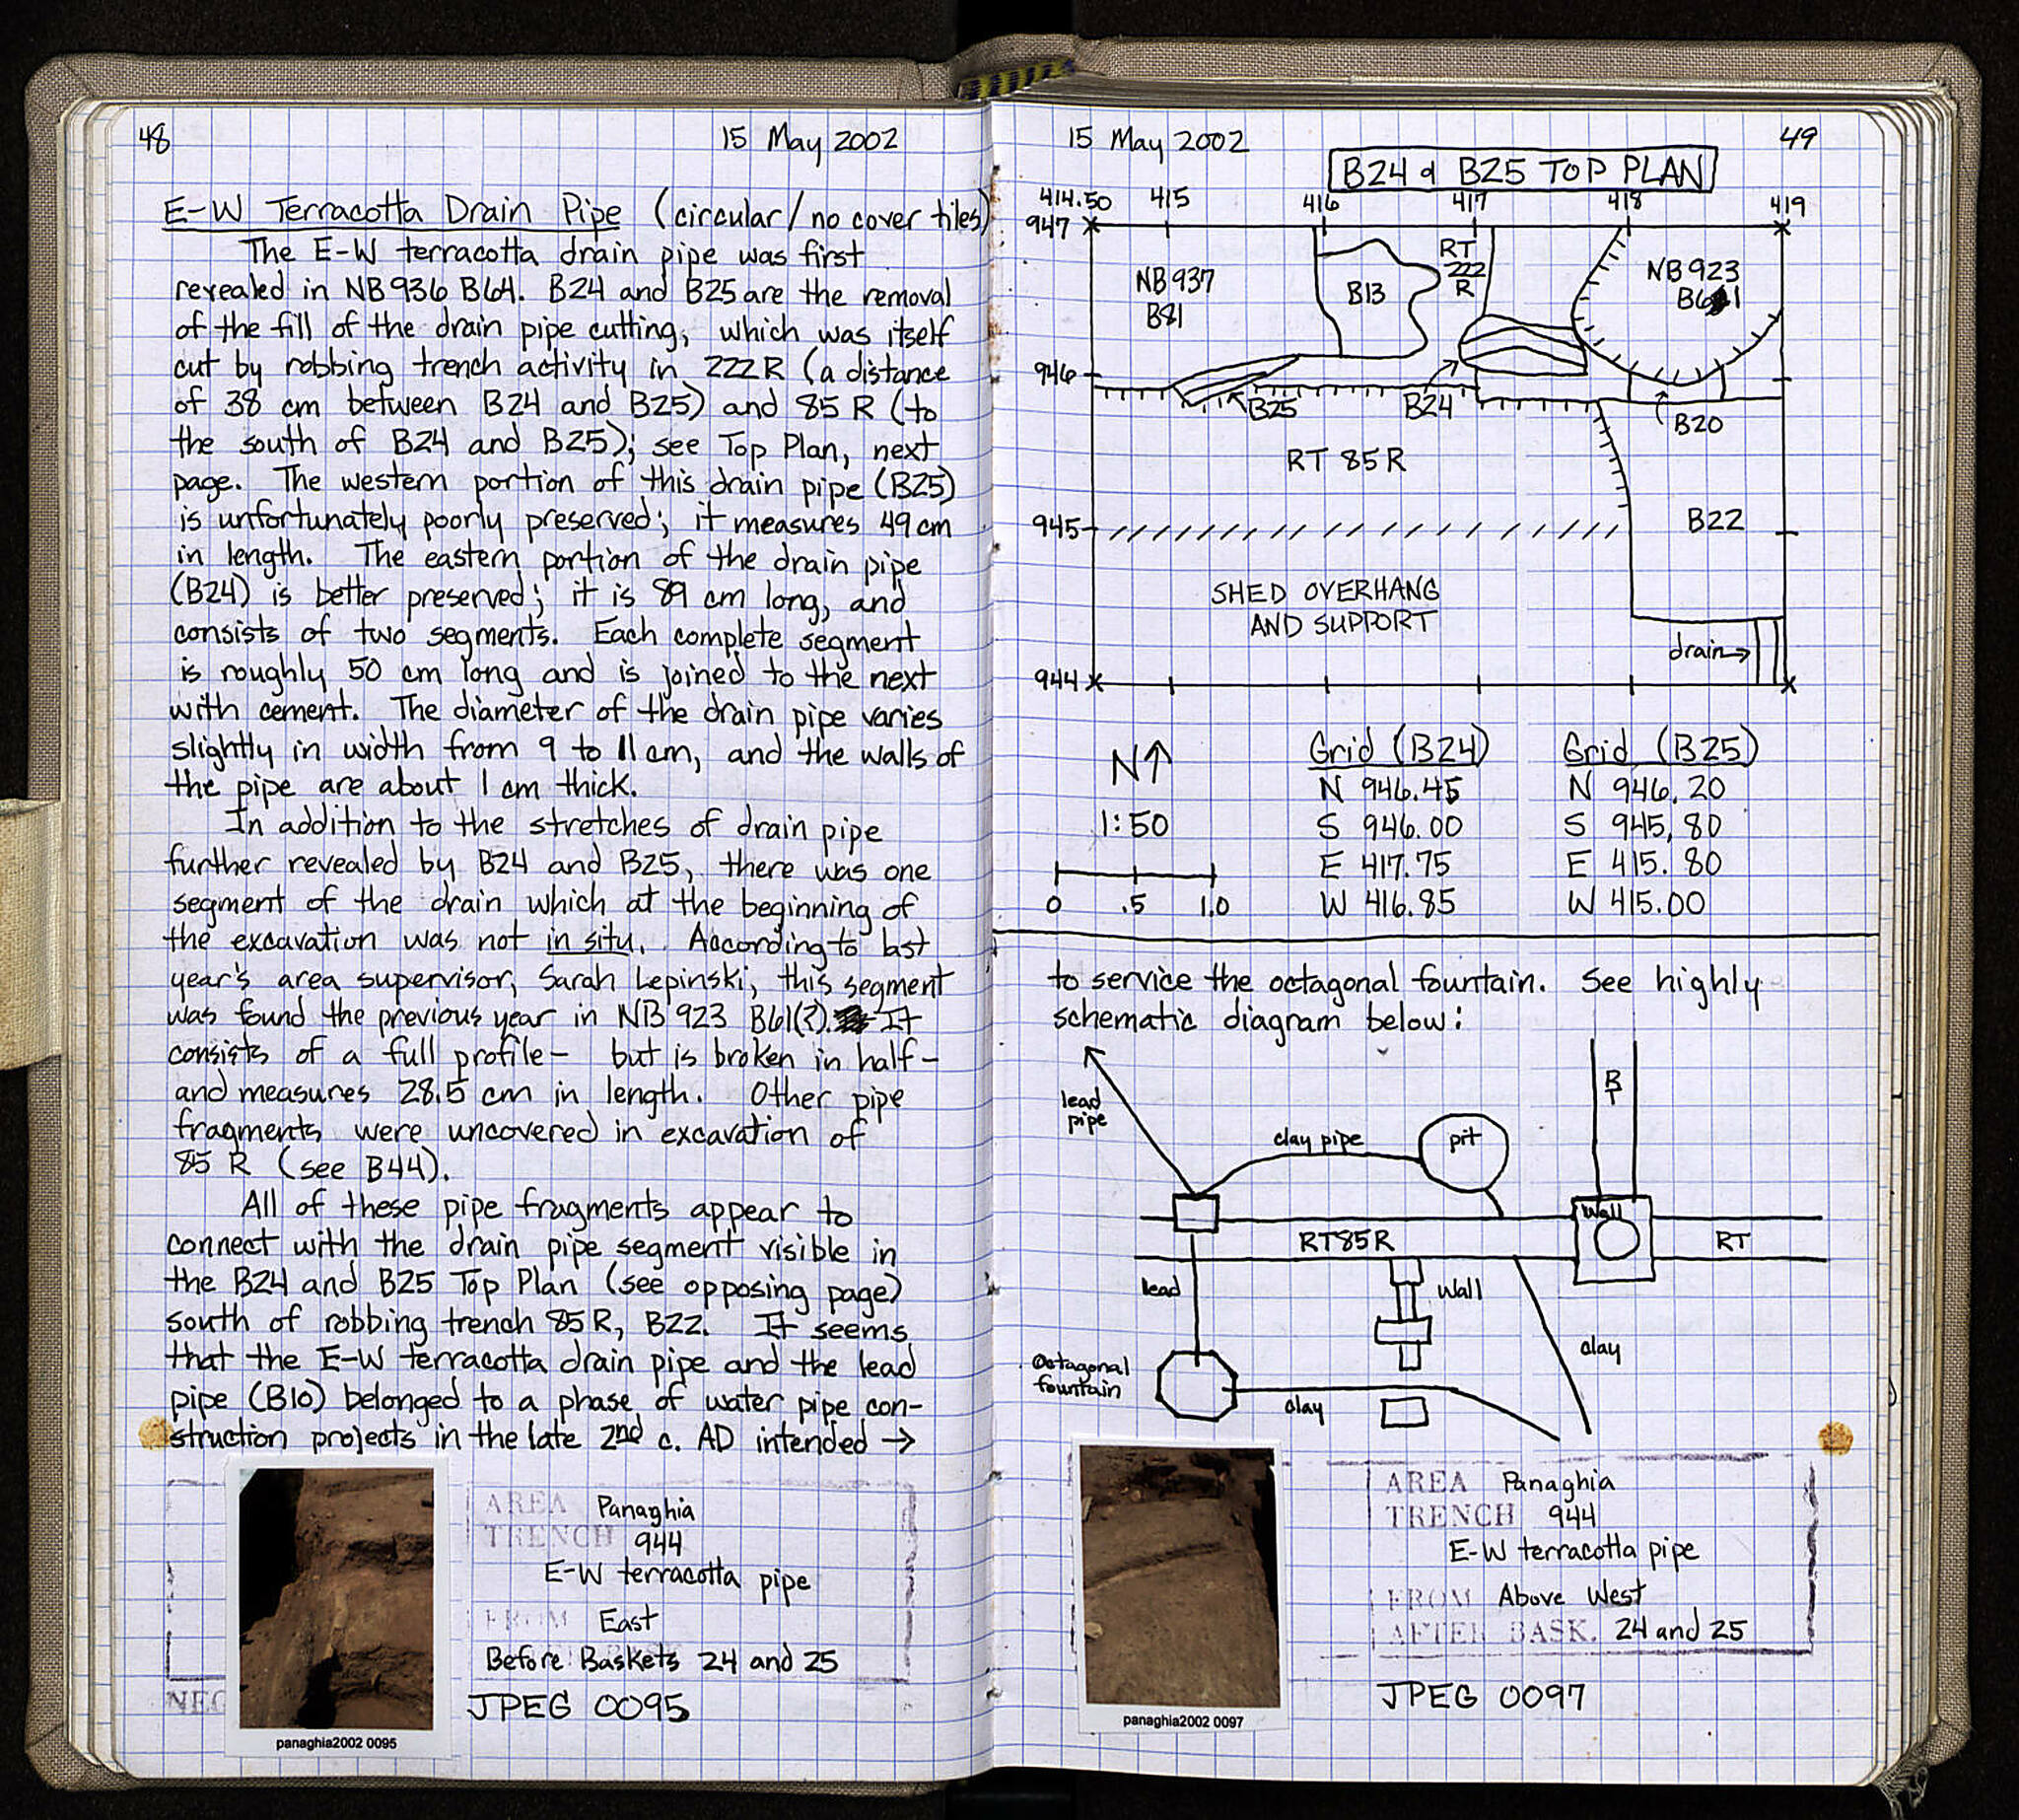 48
15 May 2002
E-W Terracotta Drain Pipe (circular/no cover tiles)
The E-W terracotta drain pipe was first
revealed in NB 936 B64. B24 and B25 are the removal
of the fill of the drain pipe cutting, which was itself
cut by robbing trench activity in 222R (a distance
of 38 cm between B24 and B25) and 85 R (to
the south of B24 and B25); see Top Plan, next
page. The western portion of this drain pipe (B25)
is unfortunately poorly preserved; it measures 49 cm
in length. The eastern portion of the drain pipe
(B24) is better preserved; it is 89 cm long, and
consists of two segments. Each complete segment
is roughly 50 cm long and is joined to the next
with cement. The diameter of the drain pipe varies
slightly in width from 9 to 11 cm, and the walls of
the pipe are about 1 cm thick.
In addition to the stretches of drain pipe
further revealed by B24 and B25, there was one
segment of the drain which at the beginning of
the excavation was not in situ. According to last
year's area supervisor, Sarah Lepinski, this segment
was found the previous year in NB 923 B61(?). It
consists of a full profile - but is broken in half -
and measures 28.5 cm in length. Other pipe
fragments were uncovered in excavation of
85 R (see B44).
All of these pipe fragments appear to
connect with the drain pipe segment visible in
the B24 and B25 Top Plan (see opposing page)
south of robbing trench 85 R, B22. It seems
that the E-W terracotta drain pipe and the lead
pipe (B10) belonged to a phase of water pipe con-
struction projects in the late 2nd c. AD intended →
AREA Panaghia
TRENCH 944
E-W terracotta pipe
FROM East
Before Baskets 24 and 25
NEG
JPEG 0095
panaghia2002 0095
15 May 2002
49
B24 & B25 TOP PLAN
414.50 415 416 417 418 419
947
NB 937
B81
B13
RT
222
R
NB 923
B61
946
B25
B24
B20
RT 85 R
945
B22
SHED OVERHANG
AND SUPPORT
drain→
944
N↑
1:50
0 .5 1.0
Grid (B24)
N 946.45
S 946.00
E 417.75
W 416.85
Grid (B25)
N 946.20
S 945.80
E 415.80
W 415.00
to service the octagonal fountain. See highly
schematic diagram below:
lead
pipe
clay pipe
pit
Wall
RT85R
RT
lead
Wall
clay
Octagonal
fountain
clay
AREA Panaghia
TRENCH 944
E-W terracotta pipe
FROM Above West
AFTER BASK. 24 and 25
JPEG 0097
panaghia2002 0097